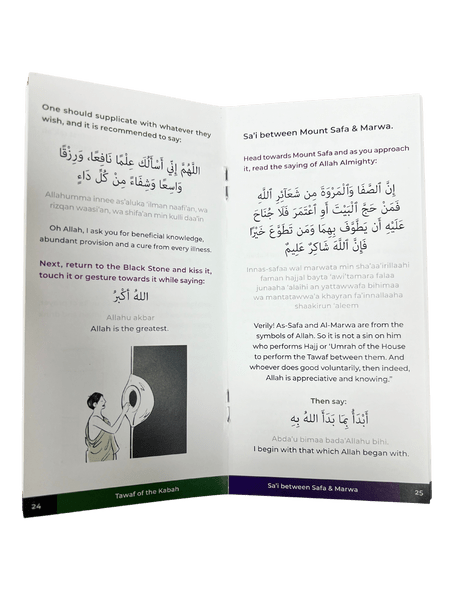 One should supplicate with whatever they
wish, and it is recommended to say:
اللَّهُمَّ إِنِّي أَسْأَلُكَ عِلْمًا نَافِعًا، وَرِزْقًا
وَاسِعًا وَشِفَاءً مِنْ كُلِّ دَاءٍ
Allahumma innee as'aluka 'ilman naafi'an, wa
rizqan waasi'an, wa shifa'an min kulli daa'in
Oh Allah, I ask you for beneficial knowledge,
abundant provision and a cure from every illness.
Next, return to the Black Stone and kiss it,
touch it or gesture towards it while saying:
اللهُ أَكْبَرُ
Allahu akbar
Allah is the greatest.
24
Tawaf of the Kabah
Sa'i between Mount Safa & Marwa.
Head towards Mount Safa and as you approach
it, read the saying of Allah Almighty:
إِنَّ الصَّفَا وَالْمَرْوَةَ مِن شَعَائِرِ اللَّهِ
فَمَنْ حَجَّ الْبَيْتَ أَوِ اعْتَمَرَ فَلَا جُنَاحَ
عَلَيْهِ أَن يَطَّوَّفَ بِهِمَا وَمَن تَطَوَّعَ خَيْرًا
فَإِنَّ اللَّهَ شَاكِرٌ عَلِيمٌ
Innas-safaa wal marwata min sha'aa'irillaahi
faman hajjal bayta 'awi'tamara falaa
junaaha 'alaihi an yattawwafa bihimaa
wa mantatawwa'a khayran fa'innallaaha
shaakirun 'aleem
Verily! As-Safa and Al-Marwa are from the
symbols of Allah. So it is not a sin on him
who performs Hajj or 'Umrah of the House
to perform the Tawaf between them. And
whoever does good voluntarily, then indeed,
Allah is appreciative and knowing."
Then say:
أَبْدَأُ بِمَا بَدَأَ اللهُ بِهِ
Abda'u bimaa bada'Allahu bihi.
I begin with that which Allah began with.
Sa'i between Safa & Marwa
25